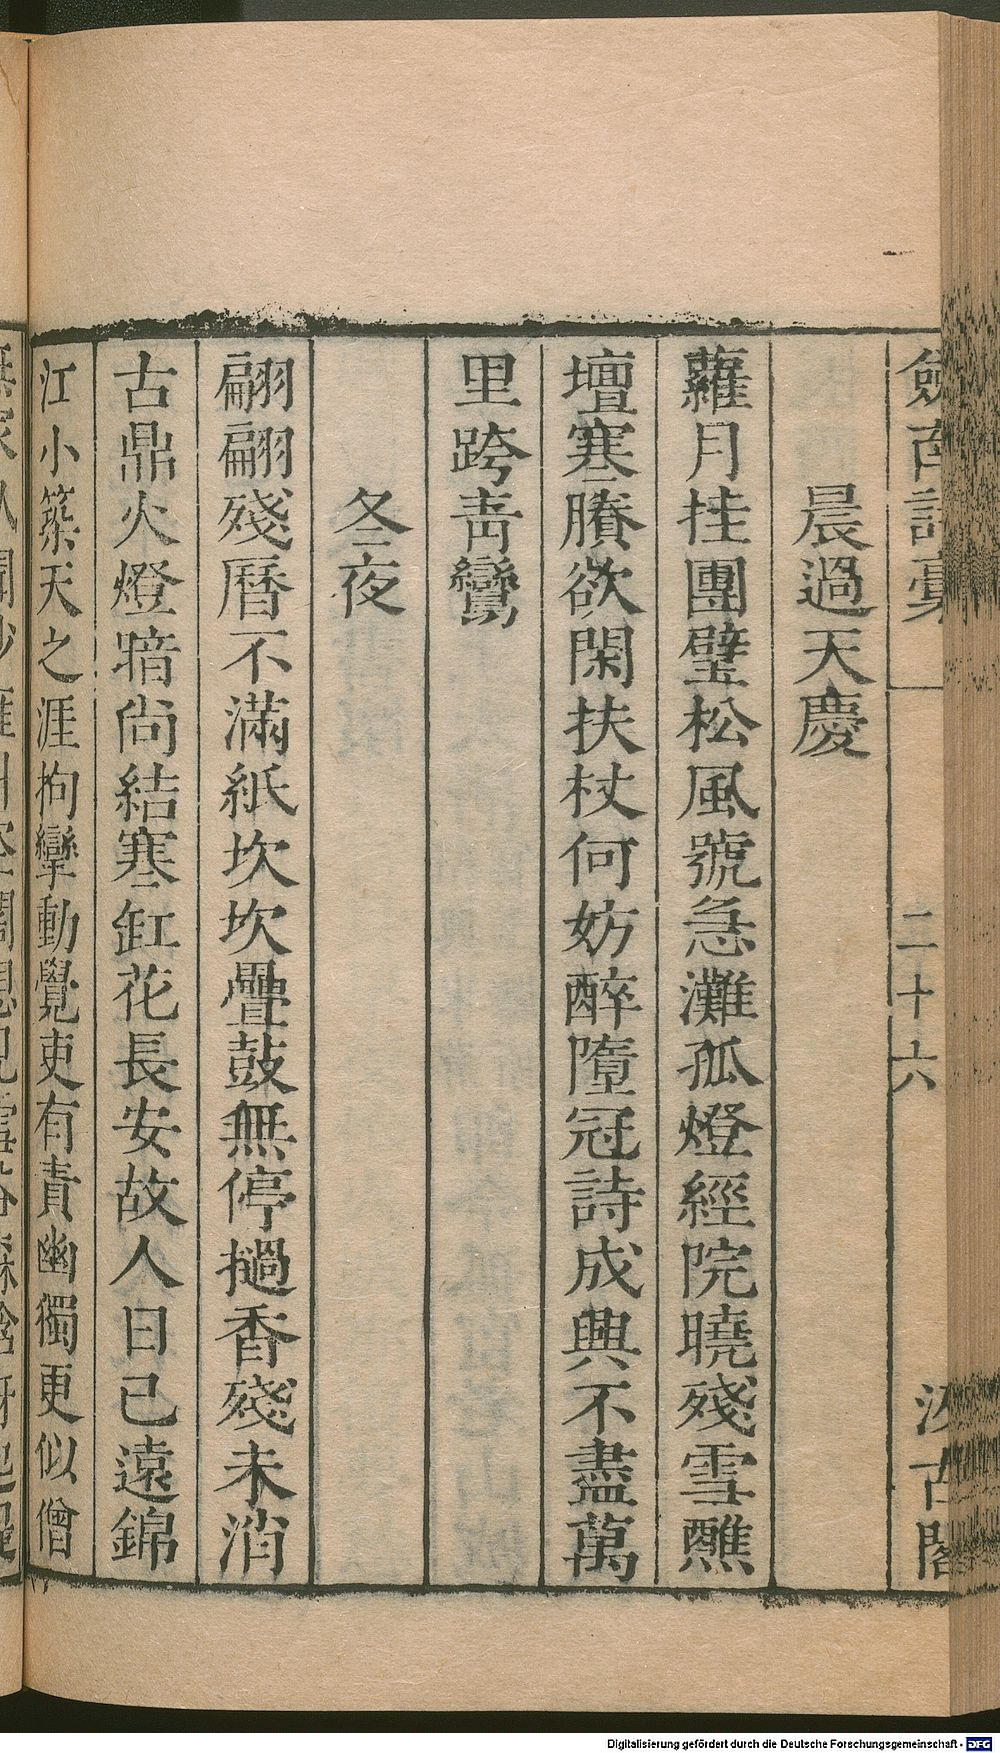 劍南詩稾
二十六
汲古閣
晨過天慶
蘿月挂團璧松風號急灘孤燈經院曉殘雪醮
壇寒賸欲閑扶杖何妨醉墮冠詩成興不盡萬
里跨靑鸞
冬夜
翩翩殘曆不滿紙坎坎疊鼓無停撾香殘未消
古鼎火燈暗尚結寒缸花長安故人日已遠錦
江小築天之涯拘攣動覺吏有責幽獨更似僧
Digitalisierung gefördert durch die Deutsche Forschungsgemeinschaft - DFG